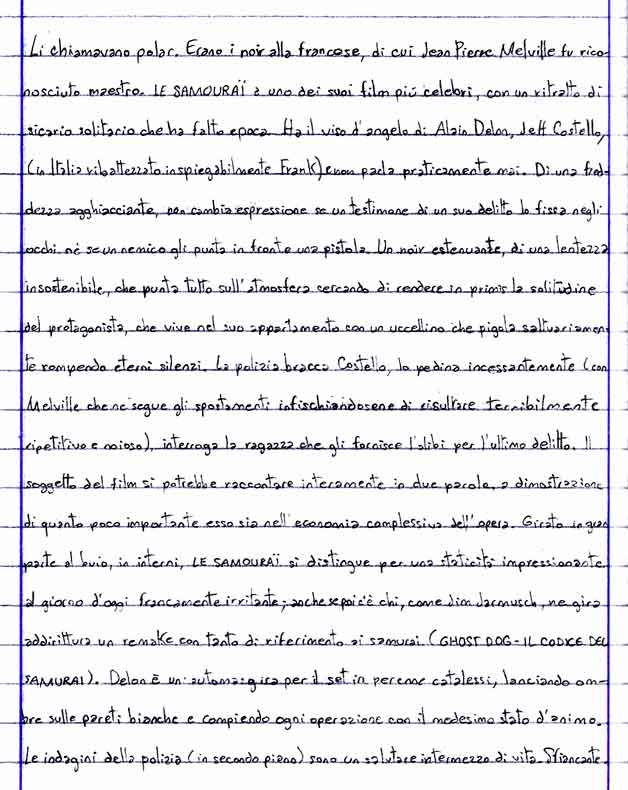 Li chiamavano polar. Erano i noir alla francese, di cui Jean Pierre Melville fu rico-
nosciuto maestro. LE SAMOURAÏ è uno dei suoi film più celebri, con un ritratto di
sicario solitario che ha fatto epoca. Ha il viso d'angelo di Alain Delon, Jeff Costello,
(in Italia ribattezzato inspiegabilmente Frank) e non parla praticamente mai. Di una fred-
dezza agghiacciante, non cambia espressione se un testimone di un suo delitto lo fissa negli
occhi nè se un nemico gli punta in fronte una pistola. Un noir estenuante, di una lentezza
insostenibile, che punta tutto sull'atmosfera cercando di rendere in primis la solitudine
del protagonista, che vive nel suo appartamento con un uccellino che pigola saltuariamen-
te rompendo eterni silenzi. La polizia bracca Costello, lo pedina incessantemente (con
Melville che ne segue gli spostamenti infischiandosene di risultare terribilmente
ripetitivo e noioso), interroga la ragazza che gli fornisce l'alibi per l'ultimo delitto. Il
soggetto del film si potrebbe raccontare interamente in due parole, a dimostrazione
di quanto poco importante esso sia nell'economia complessiva dell'opera. Girato in gran
parte al buio, in interni, LE SAMOURAÏ si distingue per una staticità impressionante,
al giorno d'oggi francamente irritante; anche se poi c'è chi, come Jim Jarmusch, ne gira
addirittura un remake con tanto di riferimento ai samurai (GHOST DOG - IL CODICE DEL
SAMURAI). Delon è un automa: gira per il set in perenne catalessi, lanciando om-
bre sulle pareti bianche e compiendo ogni operazione con il medesimo stato d'animo.
Le indagini della polizia (in secondo piano) sono un salutare intermezzo di vita. Sfiancante.